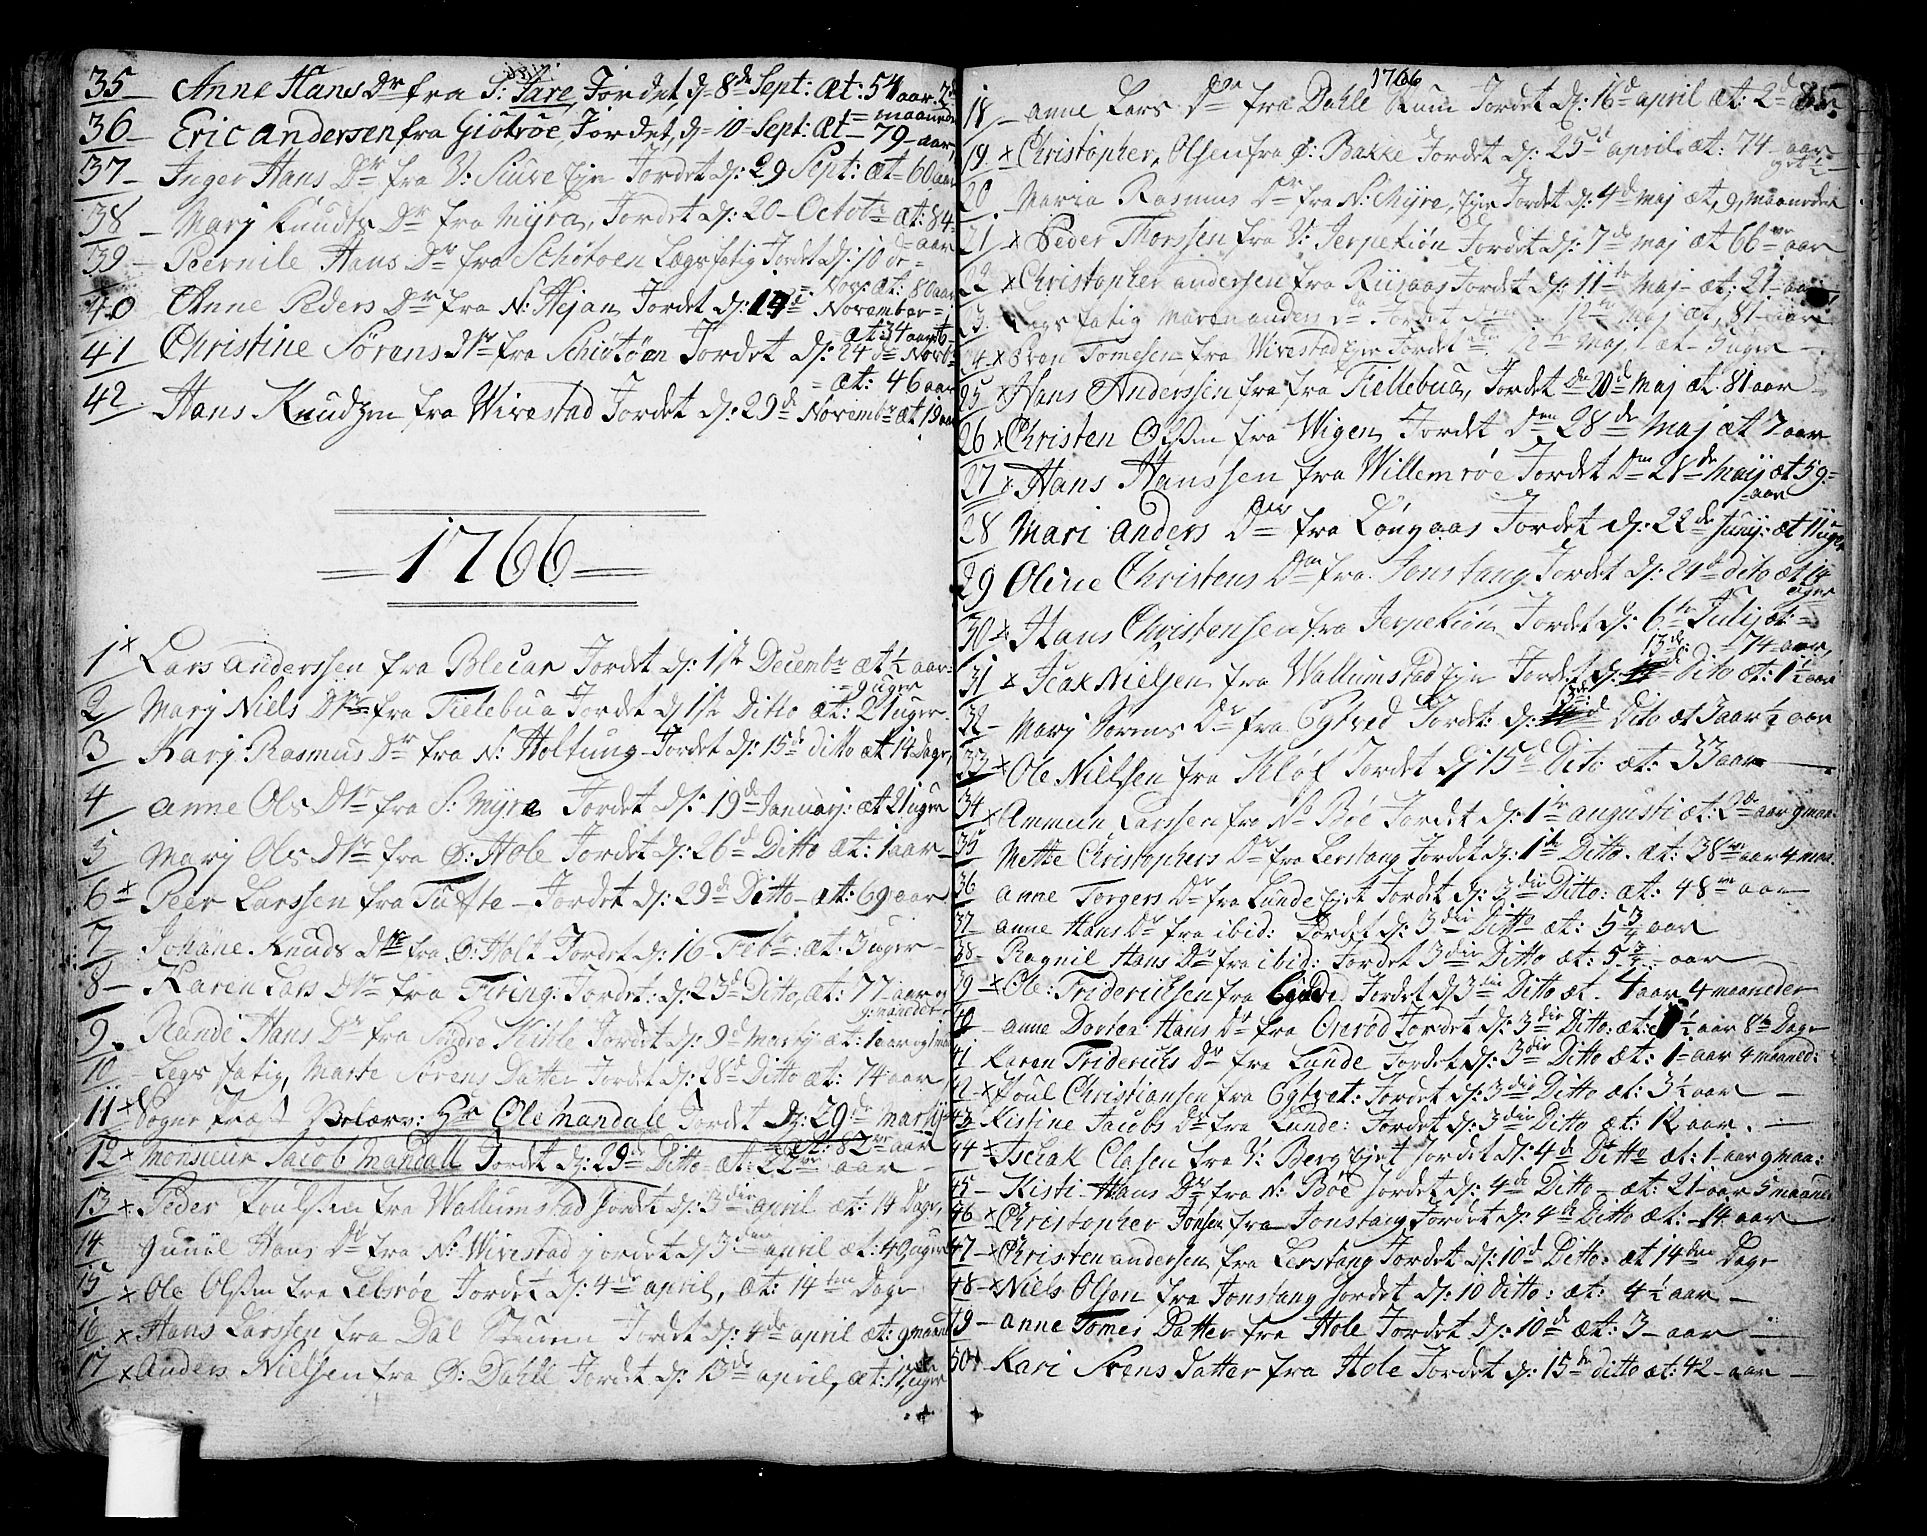 35 – Anne Hans Dr fra S: Jare, Jordet d 8de Sept: Æt: 54 aar 2de
= maaneder
36 – Eric andersen fra Giötröe, Jordet, d – 10 – Sept: Æt – 79 – aar,
37 – Inger Hans Dr fra V: Siure Eje Jordet d: 29 Sept: Æt – 60 aar
38 – Marj Knudts Dr fra Myra, Jordet d: 20 – Octobr Æt: 84 –
= aar
39 – Peernile Hans Dr fra Schötoen Lægsfatig Jordet d: 10 de =
= Novr: æt: 80 aar
40 Anne Peders Dr fra N: Hejan Jordet d: 14d November =
= æt: 34 aar 6 –
41 Christine Sörens Dtr fra Schiötöen Jordet d: 24 de Novbr
= æt: 46 aar
42. Hans Knudzen fra Wirestad Jordet d: 29d Novembr æt 19 aar
= 1766 =
1 x Lars anderssen fra Blecar Jordet d: 1ste Decembr æt ½ aar
= 9 uger
2 Marj Niels Dtr fra Tielebua Jordet d 1ste Ditto æt: 21 uger
3 Karj Rasmus Dr fra N: Holtung Jordet d: 15d Ditto æt 14 Dage,
4 anne Ols Dtr fra S: Myra Jordet d: 19d Januarj: æt 21 uger
5 Marj Ols Dtr fra Ø: Hole Jordet d: 26d Ditto æt: 1 aar
6 x Peer Larssen fra Tufte – Jordet d: 29de Ditto – æt: 69 aar
7 Johane Knuds Dtr fra Ø: Holt Jordet d: 16 – Febr: æt: 3 uger –
8 – Karen Lars Dtr fra Firing: Jordet: d: 23d Ditto, æt: 77 aar
9 maaneder
9. Rande Hans Dr fra Söndre Kihle Jordet d: 9d Martj æt: 1 aar og 1 maa
10 – Legs fatig, Marte Sörens Datter Jordet d: 28d Ditto æt: 74 aar
11 x Sogne Præst Velærv: Hr Ole Mandall Jordet D: 29de martij
æt: 82 aar
12 x monsieur Jacob Mandall Jordet d: 29d Ditto – æt: 22 aar –
13 x Peder Poulsen fra Wallumstad Jordet d: 3 die april æt: 14 Dage,
14 Guniil Hans Dr fra N: Wirestad jordet d 3den april æt: 49 uger
15 x Ole Olsen fra Lebröe Jordet d: 4de april, æt: 14ten Dage
16 x Hans Larssen fra Dal Jordet d: 4de april æt: 9 maaned
17 x Anders Nielsen fra Ø: Dahle Jordet d: 13de april, æt: 17 uger
1766
18 – anne Lars Dr fra Dahle Jordet d: 16d april æt: 2d
19 x Christopher Olsen fra Ø: Bakke Jordet d: 25d april æt: 74 – aar
20 Maria Rasmus Dr fra N: Myra, Eje Jordet d: 4de maj æt, 9, maaneder
21 x Peder Thorssen fra V: Jerpekiön Jordet d: 7de maj æt 66 aar
22 x Christopher andersen fra Riisaas Jordet d: 11te Maj – æt: 21 – aar
23. Legs fatig maren anders Dr Jordet den 12te Maj æt, 81 aar
24 x Sven Tomesen – fra Wirestad Eje Jordet den 12te maj æt – 5 uger –
25 x Hans Anderssen fra fra Tiellebua, Jordet den 20d maj æt. 81 aar
26 x Christen Olsen fra Wigen Jordet den 28de Maj æt 7 aar
27 x Hans Hanssen fra Willemröe Jordet Den 28de Maij æt 59 =
= aar
28 Mari anders Dtr fra Löngaas Jordet d: 22de Junij: æt 11 uger
29 Oline Christens Dtr fra Jonstang Jordet d: 24d dito æt 14
uger
30 x Hans Christensen fra Jerpekiön Jordet d: 6te Julij æt: =
= 74 – aar,
31 x Isak Nielsen fra Wallumstad Eje Jordet d: 13de Dito æt: 1½ aar
32 – Marj Sörens Dr fra Egtved Jordet: d: 13de Dito æt 3 aar ½ aar
33 x Ole Nielsen fra Klöf Jordet d 15d Dito æt: 33 aar –
34 x Ammun Larssen fra Nr Böe Jordet d: 1te augusti æt: 2de aar 9 maa:
35 Mette Christophers Dr fra Lerstang Jordet d: 1te Ditto. æt: 38 aar 4 maa
36 anne Torgers Dr fra Lunde Ejet Jordet d: 3 die Ditto: æt: 48 aar
37 – anne Hans Dr fra ibid: Jordet d: 3 die Ditto æt: 5¾ aar
38 – Ragnil Hans Dr fra ibid: Jordet 3 die Ditto æt: 5¾ – aar
39 – x Ole: Fridericksen fra Jordet d 3 die Ditto æt. 4 aar 4 maaneder
40 – anne Dortea Hans Dr fra Omröd Jordet d: 3 die Ditto: æt: 1½ aar 8te Dage
41 Karen Fridericks Dr fra Lunde Jordet d: 3 die Ditto æt: 1 – aar 4 maaned:
42 – x Poul Christiansen fra Egtvet: Jordet d: 3 die Ditto æt: 3½ aar –
43 – Kistine Jacobs Dr fra Lunde: Jordet d: 3 die Ditto æt: 12 aar. –
44 x Ischak Clasen fra V: Berg Ejet Jordet d: 4de Ditto æt: 1 – aar 9 maa:
45 – Kisti – Hans Dr fra N: Böe Jordet d: 4de Ditto – æt: 21 – aar 5 maaned
46 x Christopher Jonsen fra Jonstang Jordet d: 4de Ditto æt: – 14 aar
47 – x Christen andersen fra Lerstang Jordet d: 10d Ditto: æt 14den Dage
48 – x Niels Olsen fra Jonstang Jordet d: 10 Ditto: æt: 4½ aar –
49 – anne Tomes Datter fra Hole Jordet d: 10de æt: 3 – aar –
50 Kari Svens Datter fra Hole Jordet d: 15de ditto æt: 42 – aar –